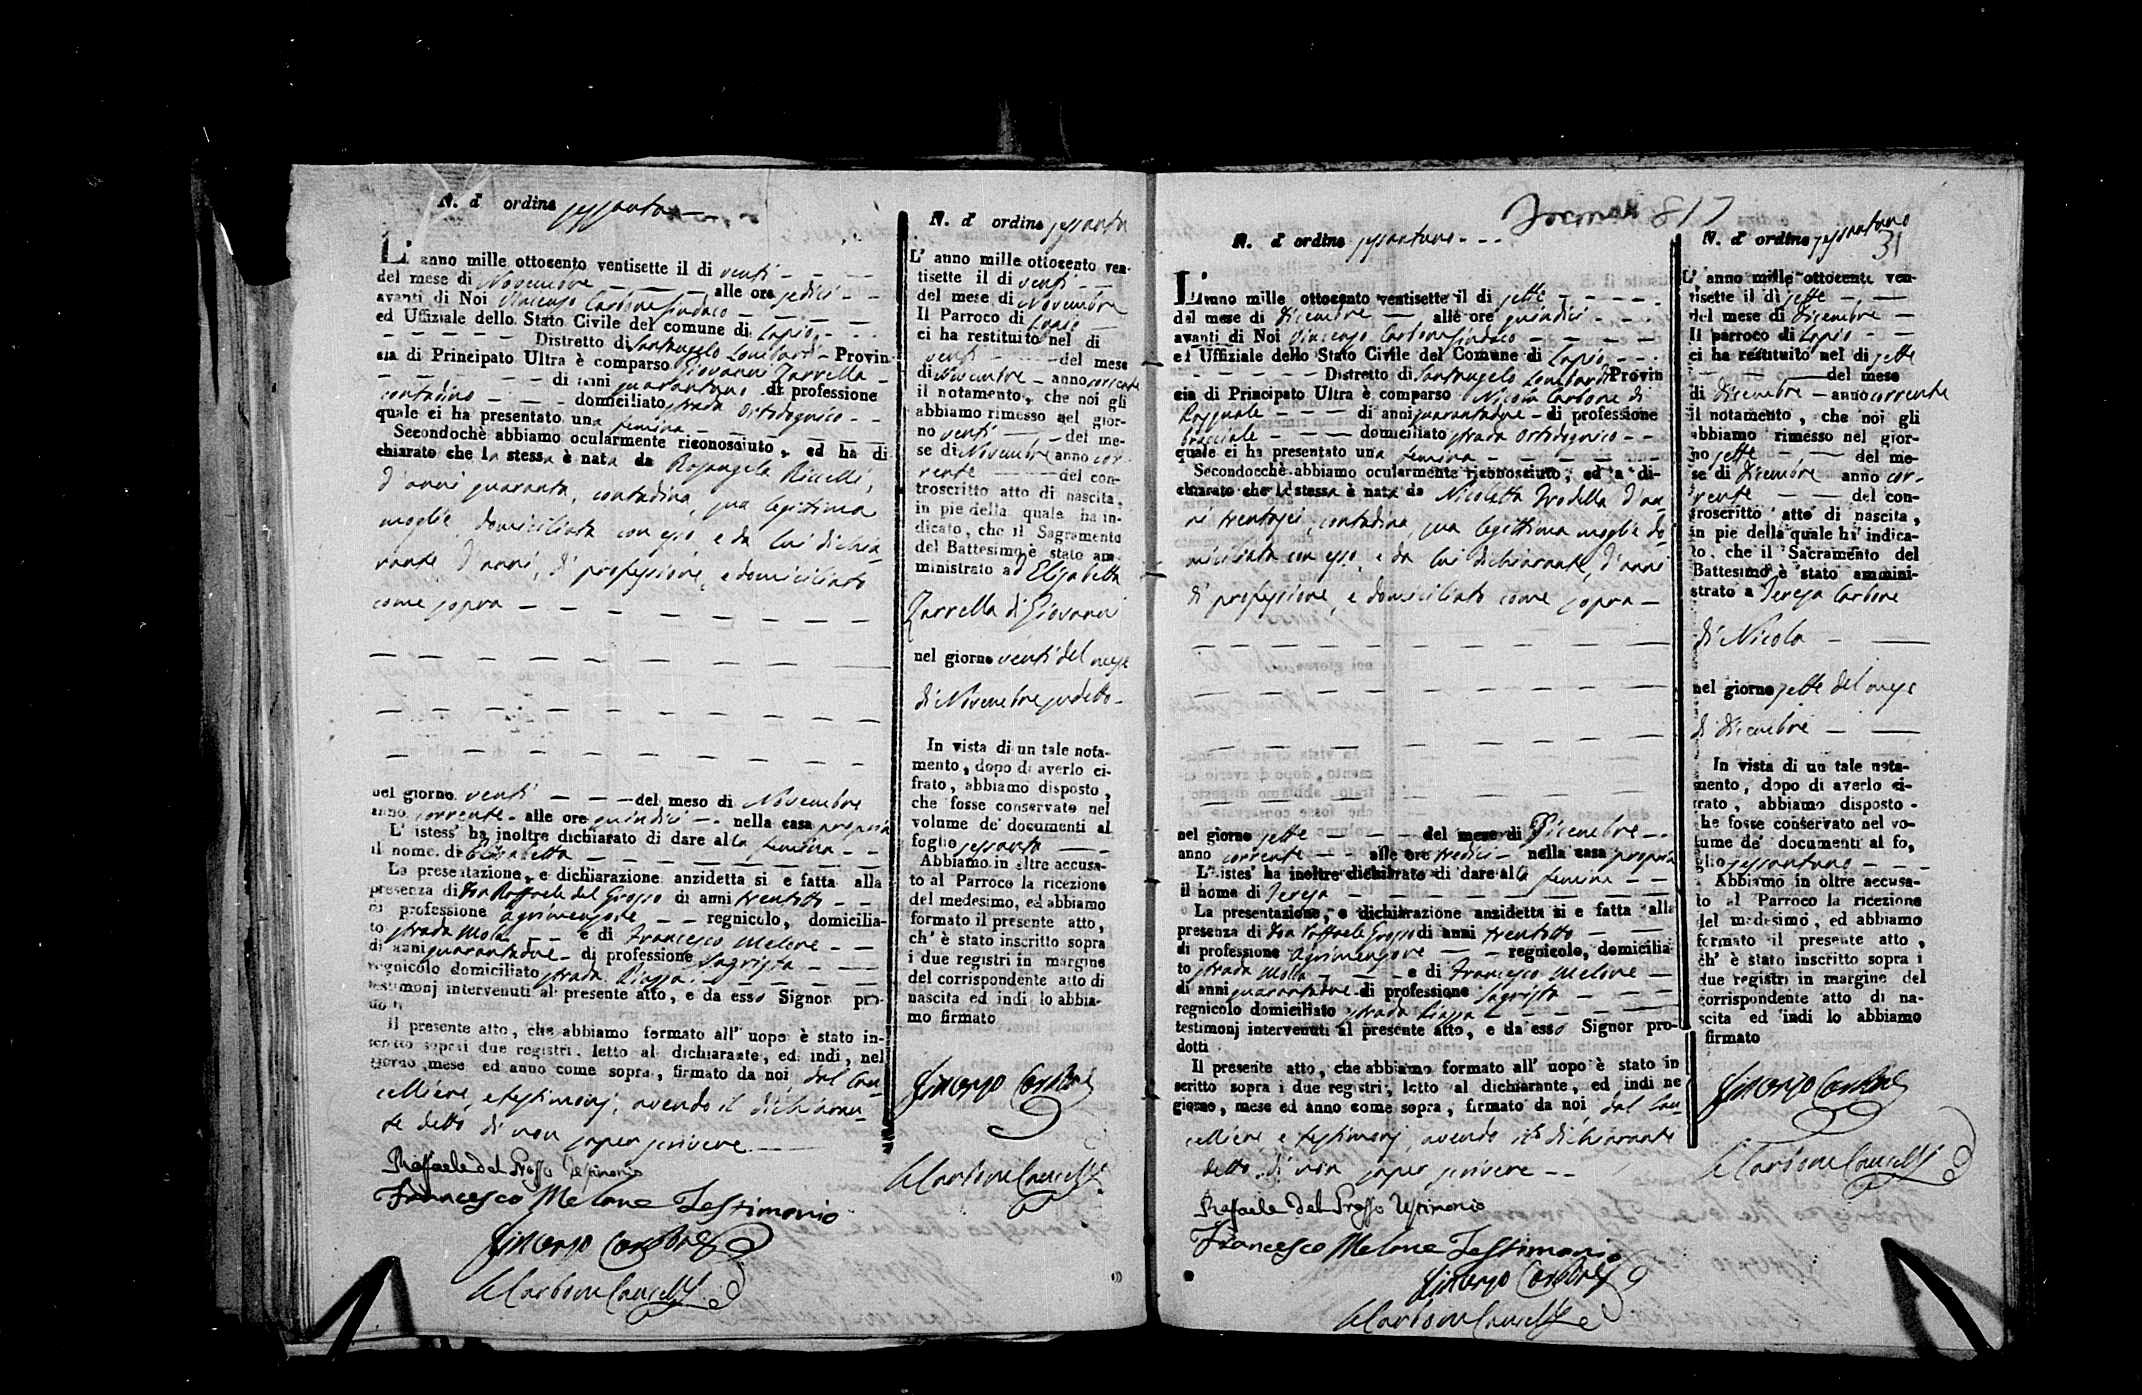 N. d' ordine sessanta
L' anno mille ottocento ventisette il di venti
del mese di Novembre alle ore sedici
avanti di Noi Vincenzo Carbone Sindaco
ed Uffiziale dello Stato Civile del comune di Lapio
Distretto di Santangelo Lombardi Provin
cia di Principato Ultra è comparso Giovanni Zarrella
di anni quarantuno di professione
contadino domiciliato strada Ortodognico
quale ci ha presentato una femina
Secondochè abbiamo ocularmente riconosciuto, ed ha di
chiarato che la stessa è nata da Rosangela Riccelli,
d'anni quaranta, contadina, sua legittima
moglie domiciliata con esso, e da lui dichia
rante d'anni, di professione, e domiciliato
come sopra
nel giorno venti del mese di Novembre
anno corrente alle ore quindici nella casa propria
L' istess' ha inoltre dichiarato di dare alla femina
il nome di Elisabetta
La presentazione, e dichiarazione anzidetta si e fatta alla
presenza di Don Raffaele del Grosso di anni trentotto
di professione agrimensore regnicolo, domicilia-
to strada Molla e di Francesco Melone
di anni quarantadue di professione Sagrista
regnicolo domiciliato strada Piazza
testimonj intervenuti al presente atto, e da esso Signor pro-
dotti
Il presente atto, che abbiamo formato all' uopo è stato in-
scritto sopra i due registri, letto al dichiarante, ed indi, nel
giorno mese ed anno come sopra, firmato da noi, dal Can
celliere, e testimonj, avendo il dichiaran-
te detto di non saper scrivere
Raffaele del Grosso Testimonio
Francesco Melone Testimonio
Vincenzo Carbone
Carbone Cancell.
N. d' ordine sessanta
L' anno mille ottocento ven-
tisette il di venti
del mese di Novembre
Il Parroco di Lapio
ci ha restituito nel di
venti del mese
di Novembre anno corrente
il notamento, che noi gli
abbiamo rimesso nel gior-
no venti del me-
se di Novembre anno cor-
rente del con-
troscritto atto di nascita,
in piè della quale ha in-
dicato, che il Sagramento
del Battesimo è stato am-
ministrato ad Elisabetta
Zarrella di Giovanni
nel giorno venti del mese
di Novembre sudetto
In vista di un tale nota-
mento, dopo di averlo ci-
frato, abbiamo disposto,
che fosse conservato nel
volume de' documenti al
foglio sessanta
Abbiamo in oltre accusa-
to al Parroco la ricezione
del medesimo, ed abbiamo
formato il presente atto,
ch' è stato inscritto sopra
i due registri in margine
del corrispondente atto di
nascita ed indi lo abbia-
mo firmato
Vincenzo Carbone
Carbone Cancell.
817
N. d' ordine sessantuno
L' anno mille ottocento ventisette il di sette
del mese di Dicembre alle ore quindici
avanti di Noi Vincenzo Carbone Sindaco
ed Uffiziale dello Stato Civile del Comune di Lapio
Distretto di Santangelo Lombardi Provin
cia di Principato Ultra è comparso Nicola Carbone di
Pasquale di anni quarantadue di professione
bracciale domiciliato strada Ortodognico
quale ci ha presentato una femina
Secondocchè abbiamo ocularmente riconosciuto, ed ha di-
chiarato che la stessa è nata da Nicoletta Trodella d'an
ni trentasei, contadina, sua legittima moglie do
miciliata con esso, e da lui dichiarante, d'anni
di professione, e domiciliato come sopra
nel giorno sette del mese di Dicembre
anno corrente alle ore tredici nella casa propria
L' istes' ha inoltre dichiarato di dare alla femina
il nome di Teresa
La presentazione, e dichiarazione anzidetta si e fatta alla
presenza di Don Raffaele Grosso di anni trentotto
di professione agrimensore regnicolo, domicilia-
to strada Molla e di Francesco Melone
di anni quarantadue di professione Sagrista
regnicolo domiciliato strada Piazza
testimonj intervenuti al presente atto, e da esso Signor pro-
dotti
Il presente atto, che abbiamo formato all' uopo è stato in
scritto sopra i due registri, letto al dichiarante, ed indi ne
giorno, mese ed anno come sopra, firmato da noi, dal Can
celliere e testimonj, avendo il dichiarante
detto di non saper scrivere
Raffaele del Grosso Testimonio
Francesco Melone Testimonio
Vincenzo Carbone
Carbone Cancell.
N. d' ordine sessantuno
31
L' anno mille ottocento ven-
tisette il di sette
del mese di Dicembre
Il parroco di Lapio
ci ha restituito nel di sette
del mese
di Dicembre anno corrente
il notamento, che noi gli
abbiamo rimesso nel gior-
no sette del me-
se di Dicembre anno cor-
rente del con-
troscritto atto di nascita,
in piè della quale hi indica-
to, che il Sacramento del
Battesimo è stato ammini-
strato a Teresa Carbone
di Nicola
nel giorno sette del mese
di Dicembre
In vista di un tale nota-
mento, dopo di averlo ci-
frato, abbiamo disposto
che fosse conservato nel vo-
lume de' documenti al fo,
glio sessantuno
Abbiamo in oltre accusa-
to al Parroco la ricezione
del medesimo, ed abbiamo
formato il presente atto,
ch' è stato inscritto sopra i
due registri in margine del
corrispondente atto di na-
scita ed indi lo abbiamo
firmato
Vincenzo Carbone
Carbone Cancell.